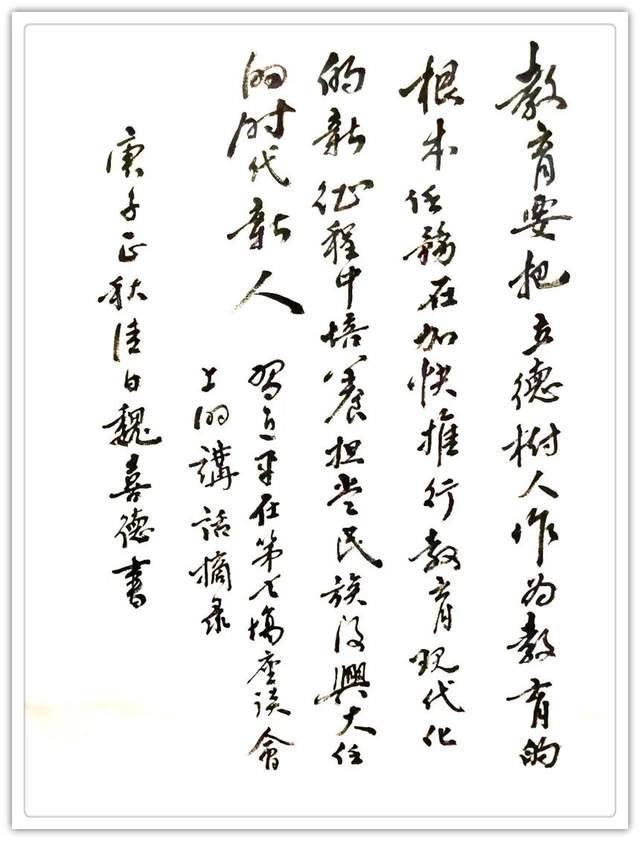 教育要把立德树人作为教育的
根本任務在加快推行教育现代化
的新征程中培养担当民族復興大任
的时代新人
習近平在第七場座谈會
上的講话摘录
庚子正秋佳日魏喜德書